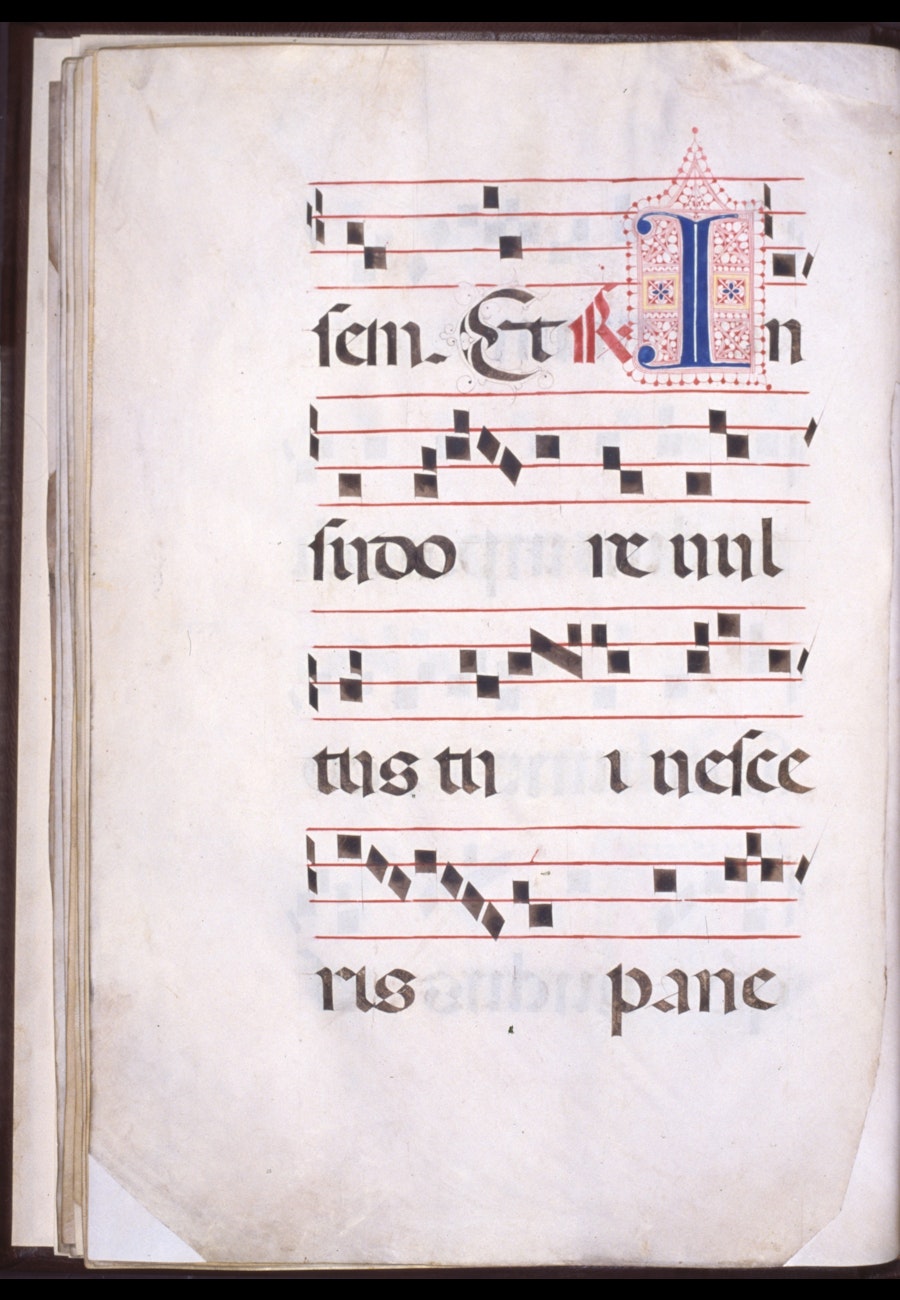 sem. Et ℟. In
sudo re vul
tus tu i vesce
ris pane